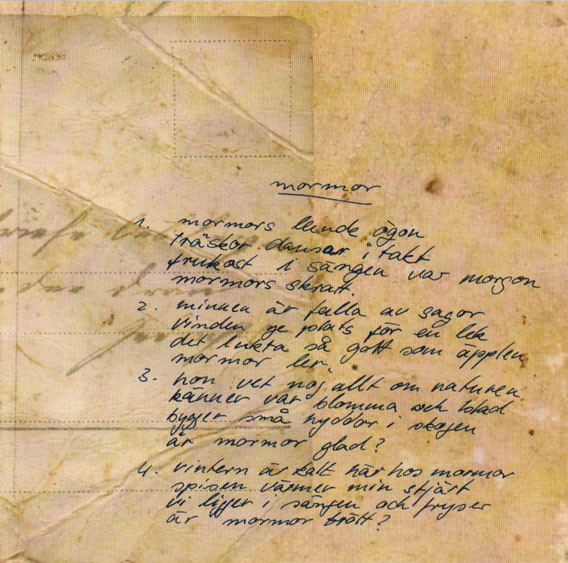 mormor
1. mormors leende ögon
träskor dansar i takt
frukost i sängen var morgon
mormors skratt
2. minnen är fulla av sagor
vinden ge plats för en lek
det lukta så gott som äpplen
mormor ler.
3. hon vet nog allt om naturen
känner var blomma och blad
bygger små hyddor i skogen
är mormor glad?
4. vintern är kallt här hos mormor
spisen värmer min stjärt
vi ligger i sängen och fryser
är mormor trött?